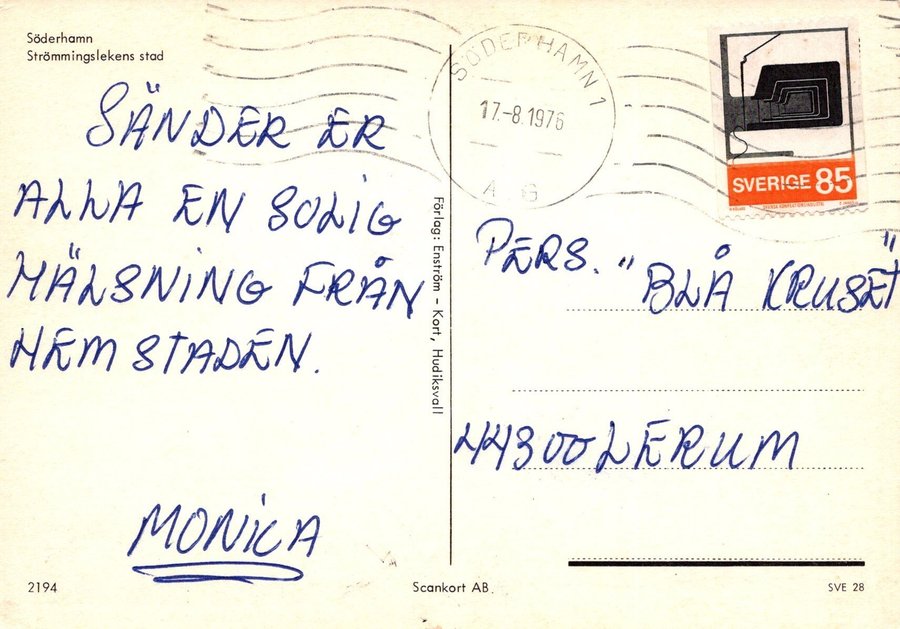 Söderhamn
Strömmingslekens stad
SÄNDER ER
ALLA EN SOLIG
HÄLSNING FRÅN
HEMSTADEN.
MONICA
2194
Förlag: Enström - Kort, Hudiksvall
Scankort AB.
SÖDERHAMN 1
17.-8.1976
A G
SVERIGE 85
PERS. "BLÅ KRUSET"
44300 LERUM
SVE 28